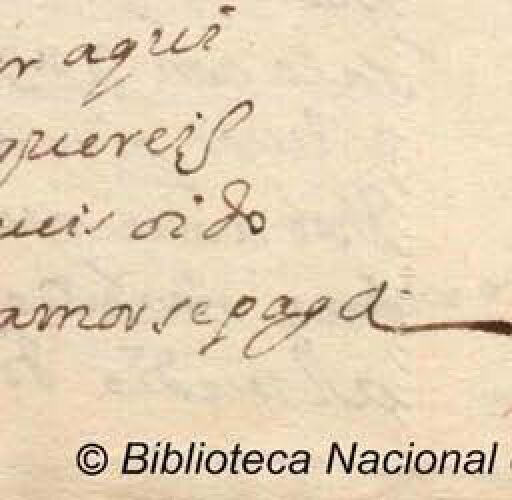 aqui
quereis
oido
amor se paga
© Biblioteca Nacional